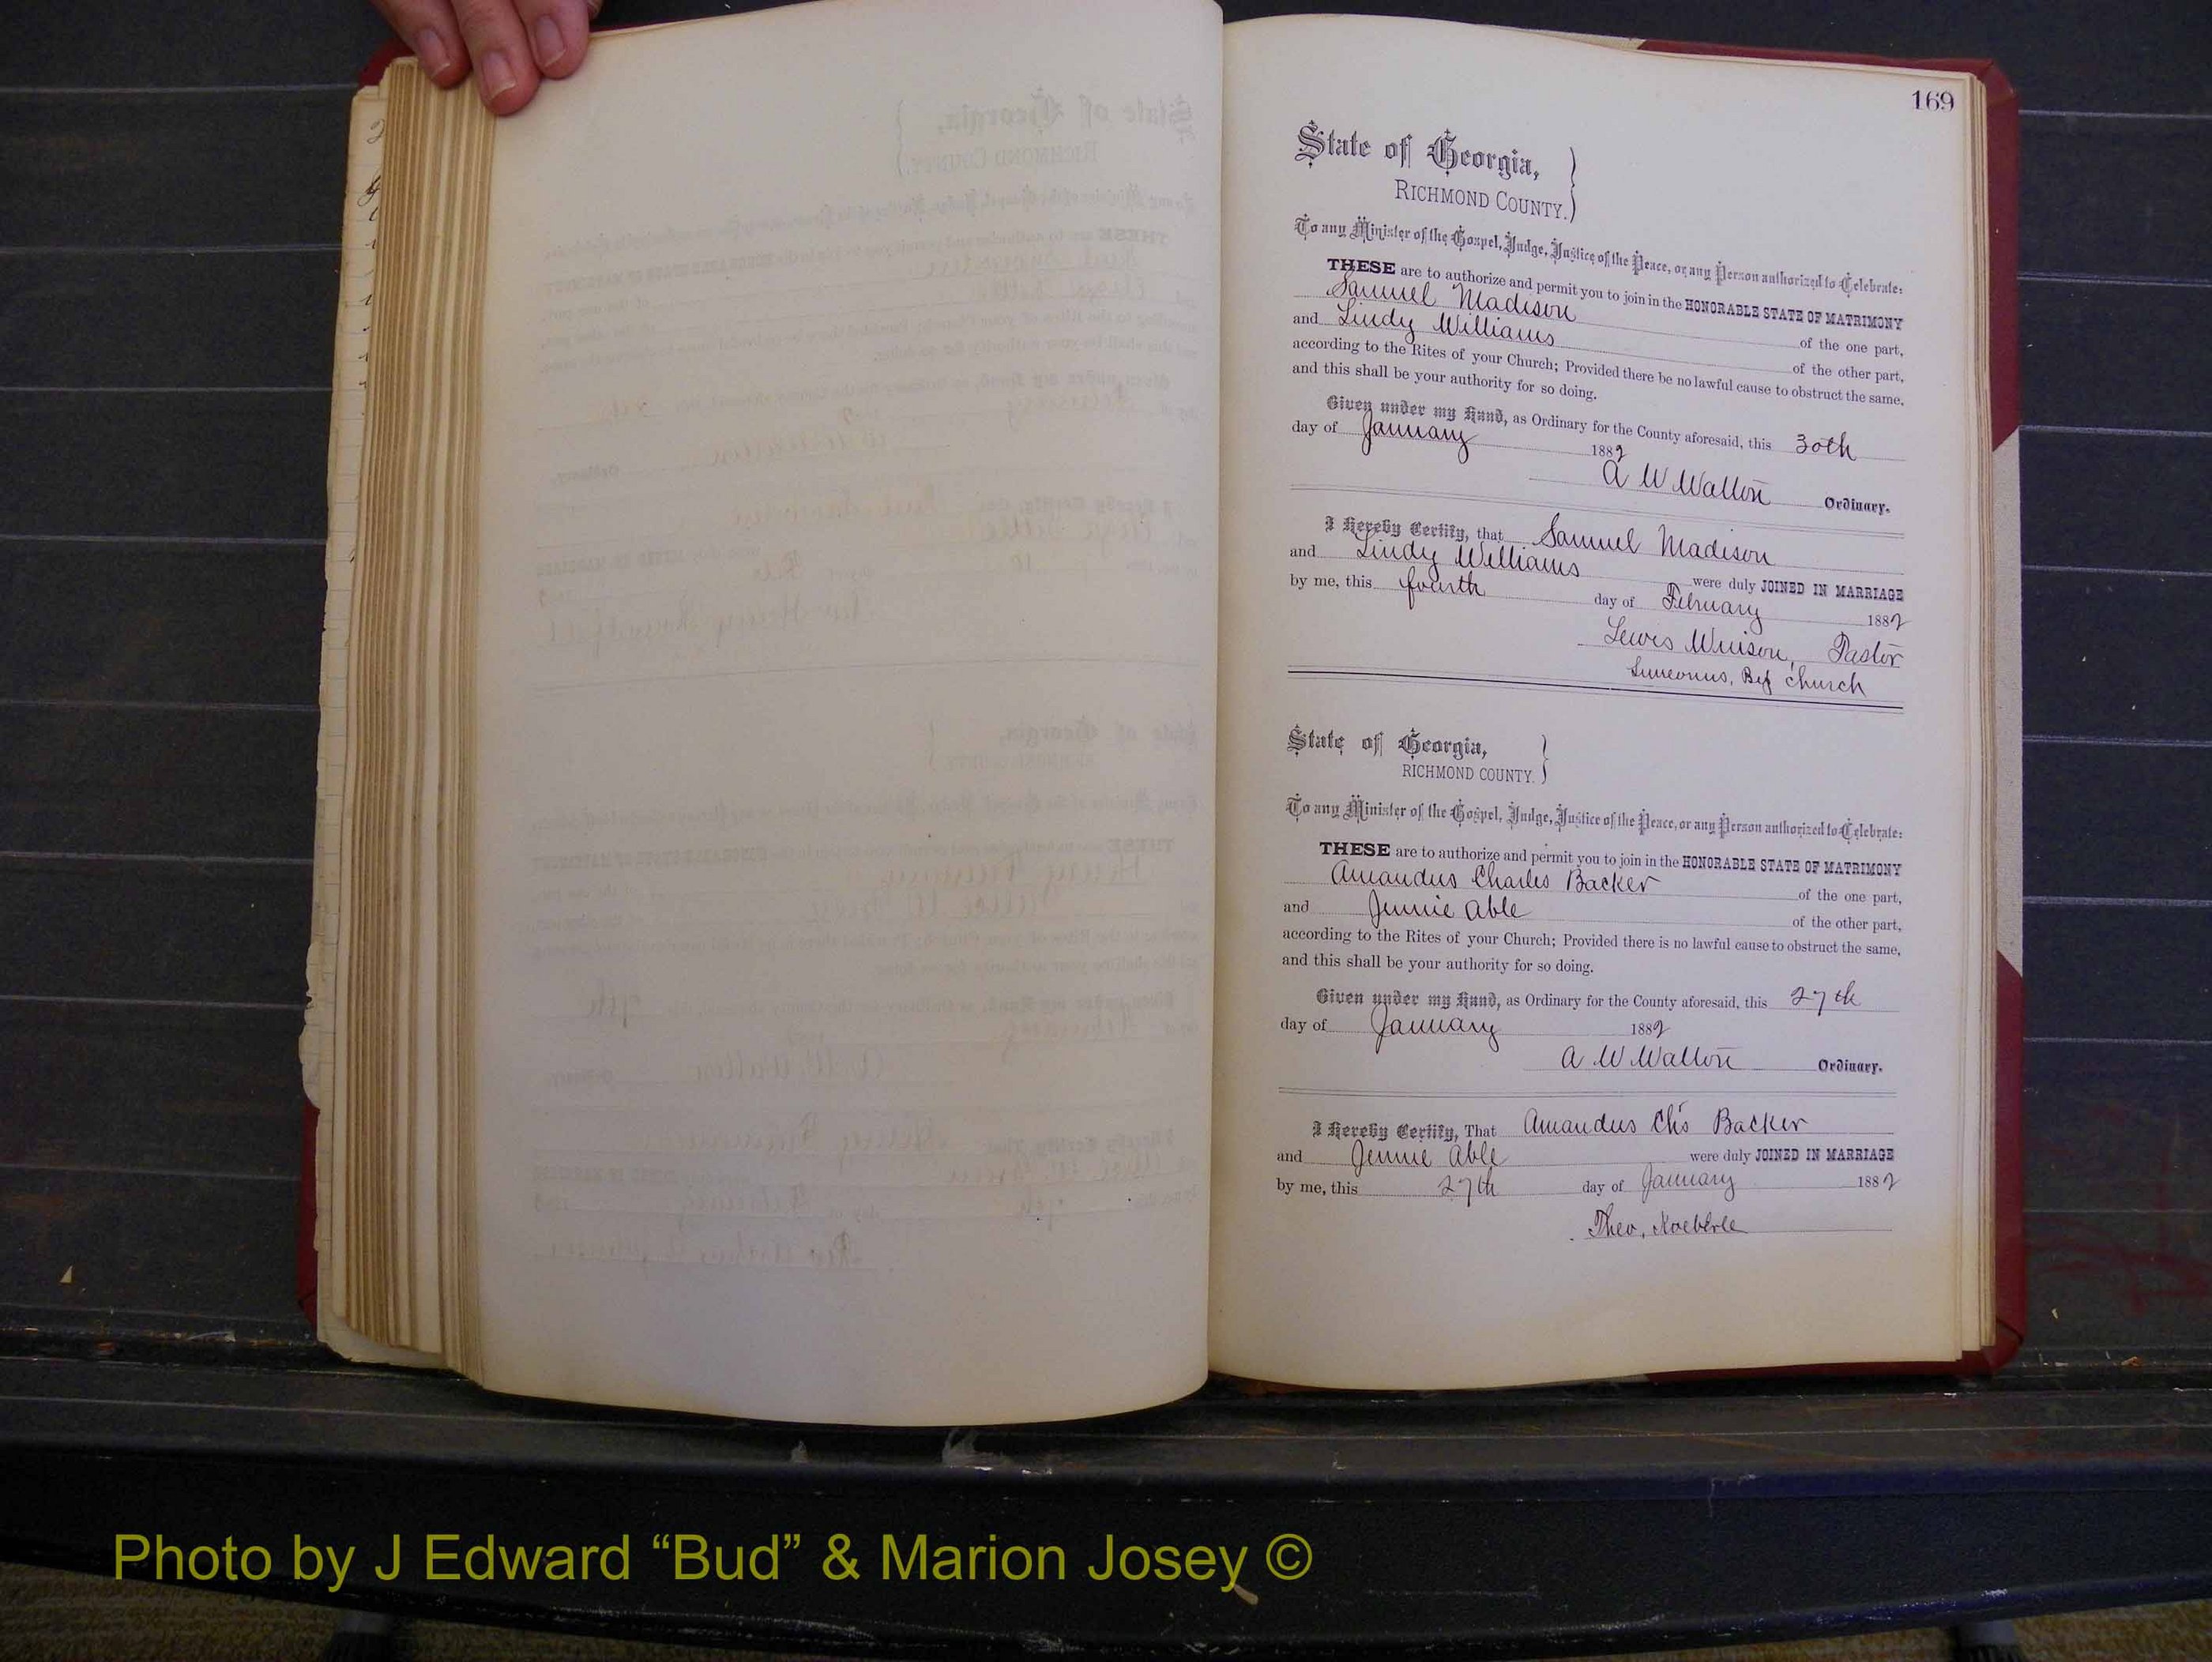 169
State of Georgia,
RICHMOND COUNTY.
To any Minister of the Gospel, Judge, Justice of the Peace, or any Person authorized to Celebrate:
THESE are to authorize and permit you to join in the HONORABLE STATE OF MATRIMONY
Samuel Madison of the one part,
and Lindy Williams of the other part,
according to the Rites of your Church; Provided there be no lawful cause to obstruct the same,
and this shall be your authority for so doing.
Given under my Hand, as Ordinary for the County aforesaid, this 30th
day of January 1882
A W Walton Ordinary.
I Hereby Certify, that Samuel Madison
and Lindy Williams were duly JOINED IN MARRIAGE
by me, this fourth day of February 1882
Lewis Pastor
church
State of Georgia,
RICHMOND COUNTY.
To any Minister of the Gospel, Judge, Justice of the Peace, or any Person authorized to Celebrate:
THESE are to authorize and permit you to join in the HONORABLE STATE OF MATRIMONY
Amandus Charles Backer of the one part,
and Jennie Able of the other part,
according to the Rites of your Church; Provided there is no lawful cause to obstruct the same,
and this shall be your authority for so doing.
Given under my Hand, as Ordinary for the County aforesaid, this 27th
day of January 1882
A W Walton Ordinary.
I Hereby Certify, That Amandus Chs Backer
and Jennie Able were duly JOINED IN MARRIAGE
by me, this 27th day of January 1882
Theo. Koeberle
Photo by J Edward “Bud” & Marion Josey ©